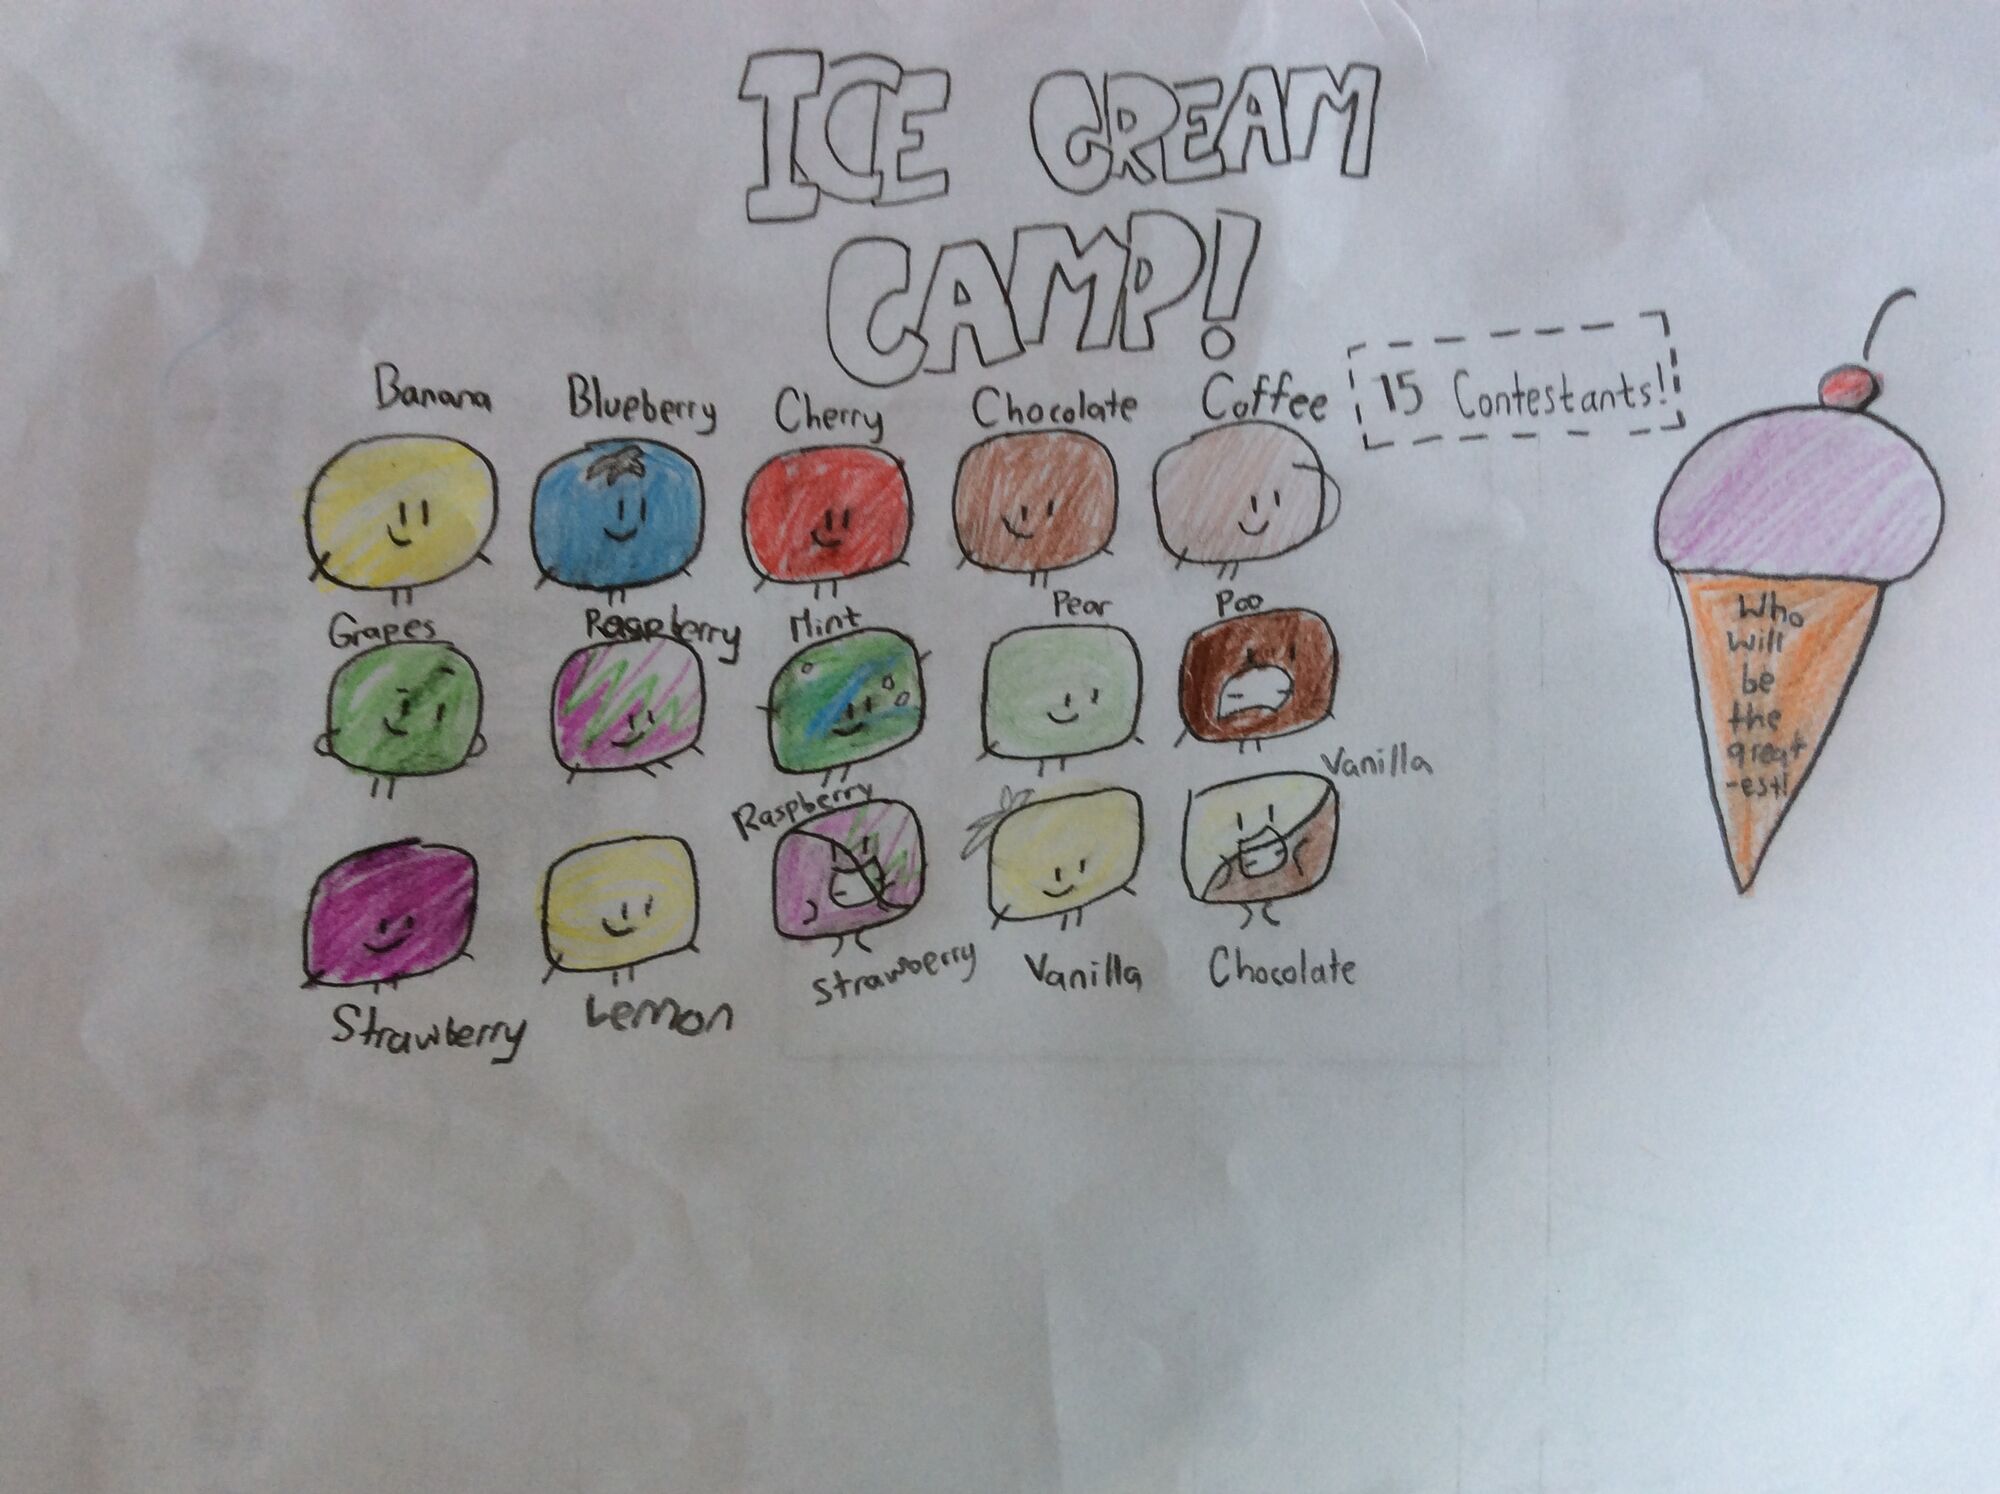 ICE CREAM
CAMP!
15 Contestants!
Banana Blueberry Cherry Chocolate Coffee
Grapes Raspberry Mint Pear Poo
Raspberry Vanilla
Strawberry Lemon Strawberry Vanilla Chocolate
Who
will
be
the
great
-est!